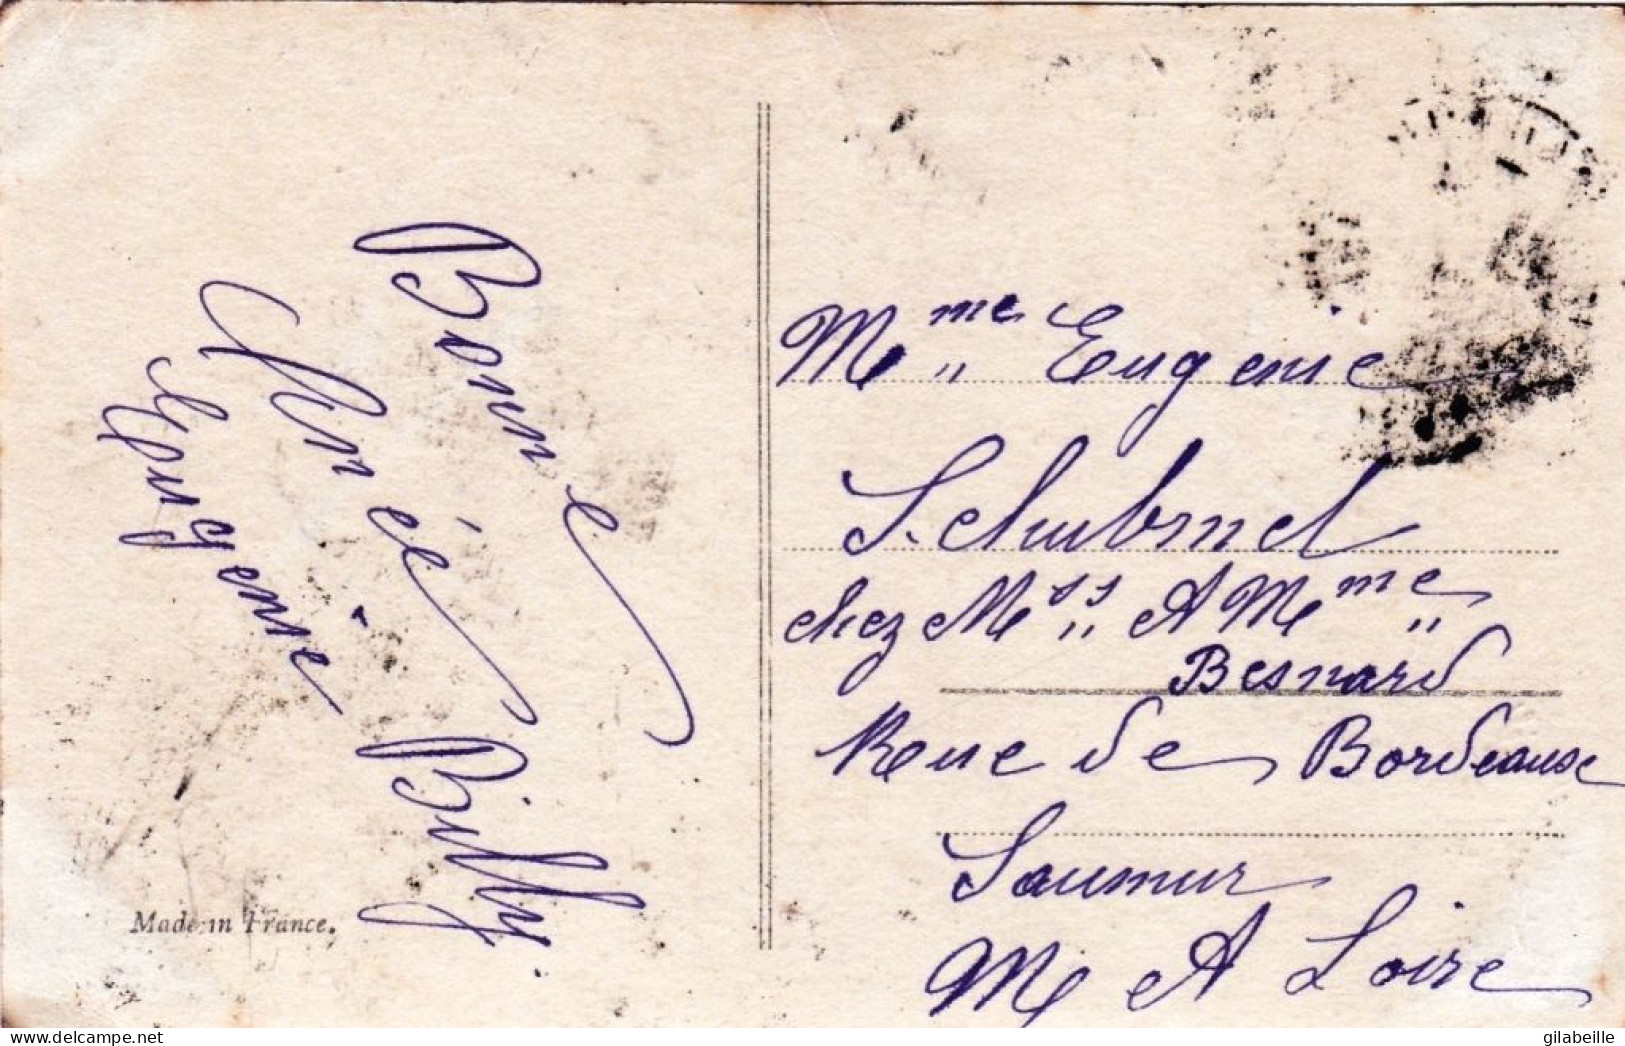 Bonne
Année Billy.
Eougenie
Made in France.
Mme Eugenie
Schubnel
chez Mss A Mme
Besnard
Rue de Bordeause
Saumur
M A Loire
delcampe.net
gilabeille